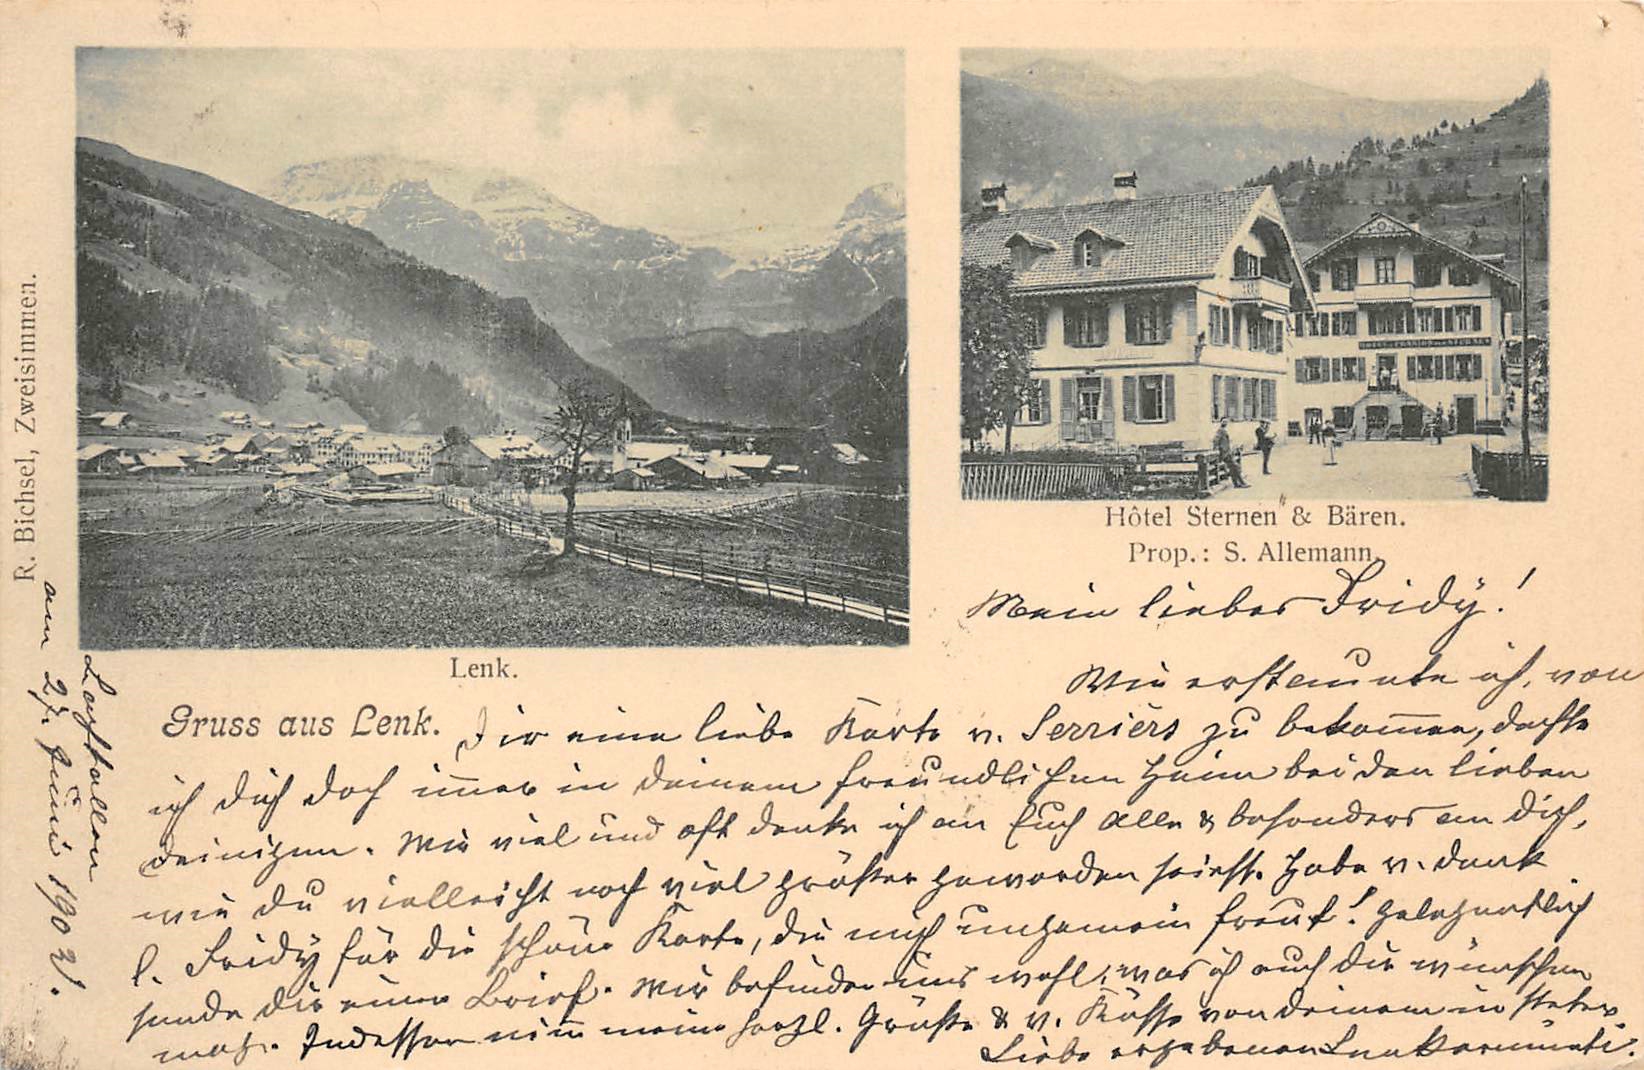 R. Bichsel, Zweisimmen.
HOTEL & PENSION STERNEN
Hôtel Sternen & Bären.
Prop.: S. Allemann.
Lenk.
Gruss aus Lenk.
am 27. Juni 1902.
Mein liebes Fridy!
Wie erstaunte ich, von
Dir eine liebe Karte v. Serrièrs zu bekommen, dachte
ich dich doch immer in deinem freundlichen Heim bei den lieben
deinigen. Wie viel und oft denke ich an Euch Alle & besonders an dich,
wie du vielleicht noch viel größer geworden seiest. Habe v. Dank
l. Fridy für die schöne Karte, die mich ungemein freut! Gelegentlich
sende dir einen Brief. Wir befinden uns wohl, was ich auch dir wünschen
mag. Indessen nimm meine herzl. Grüße & v. Küsse von deinem in steter
Liebe ergebenen